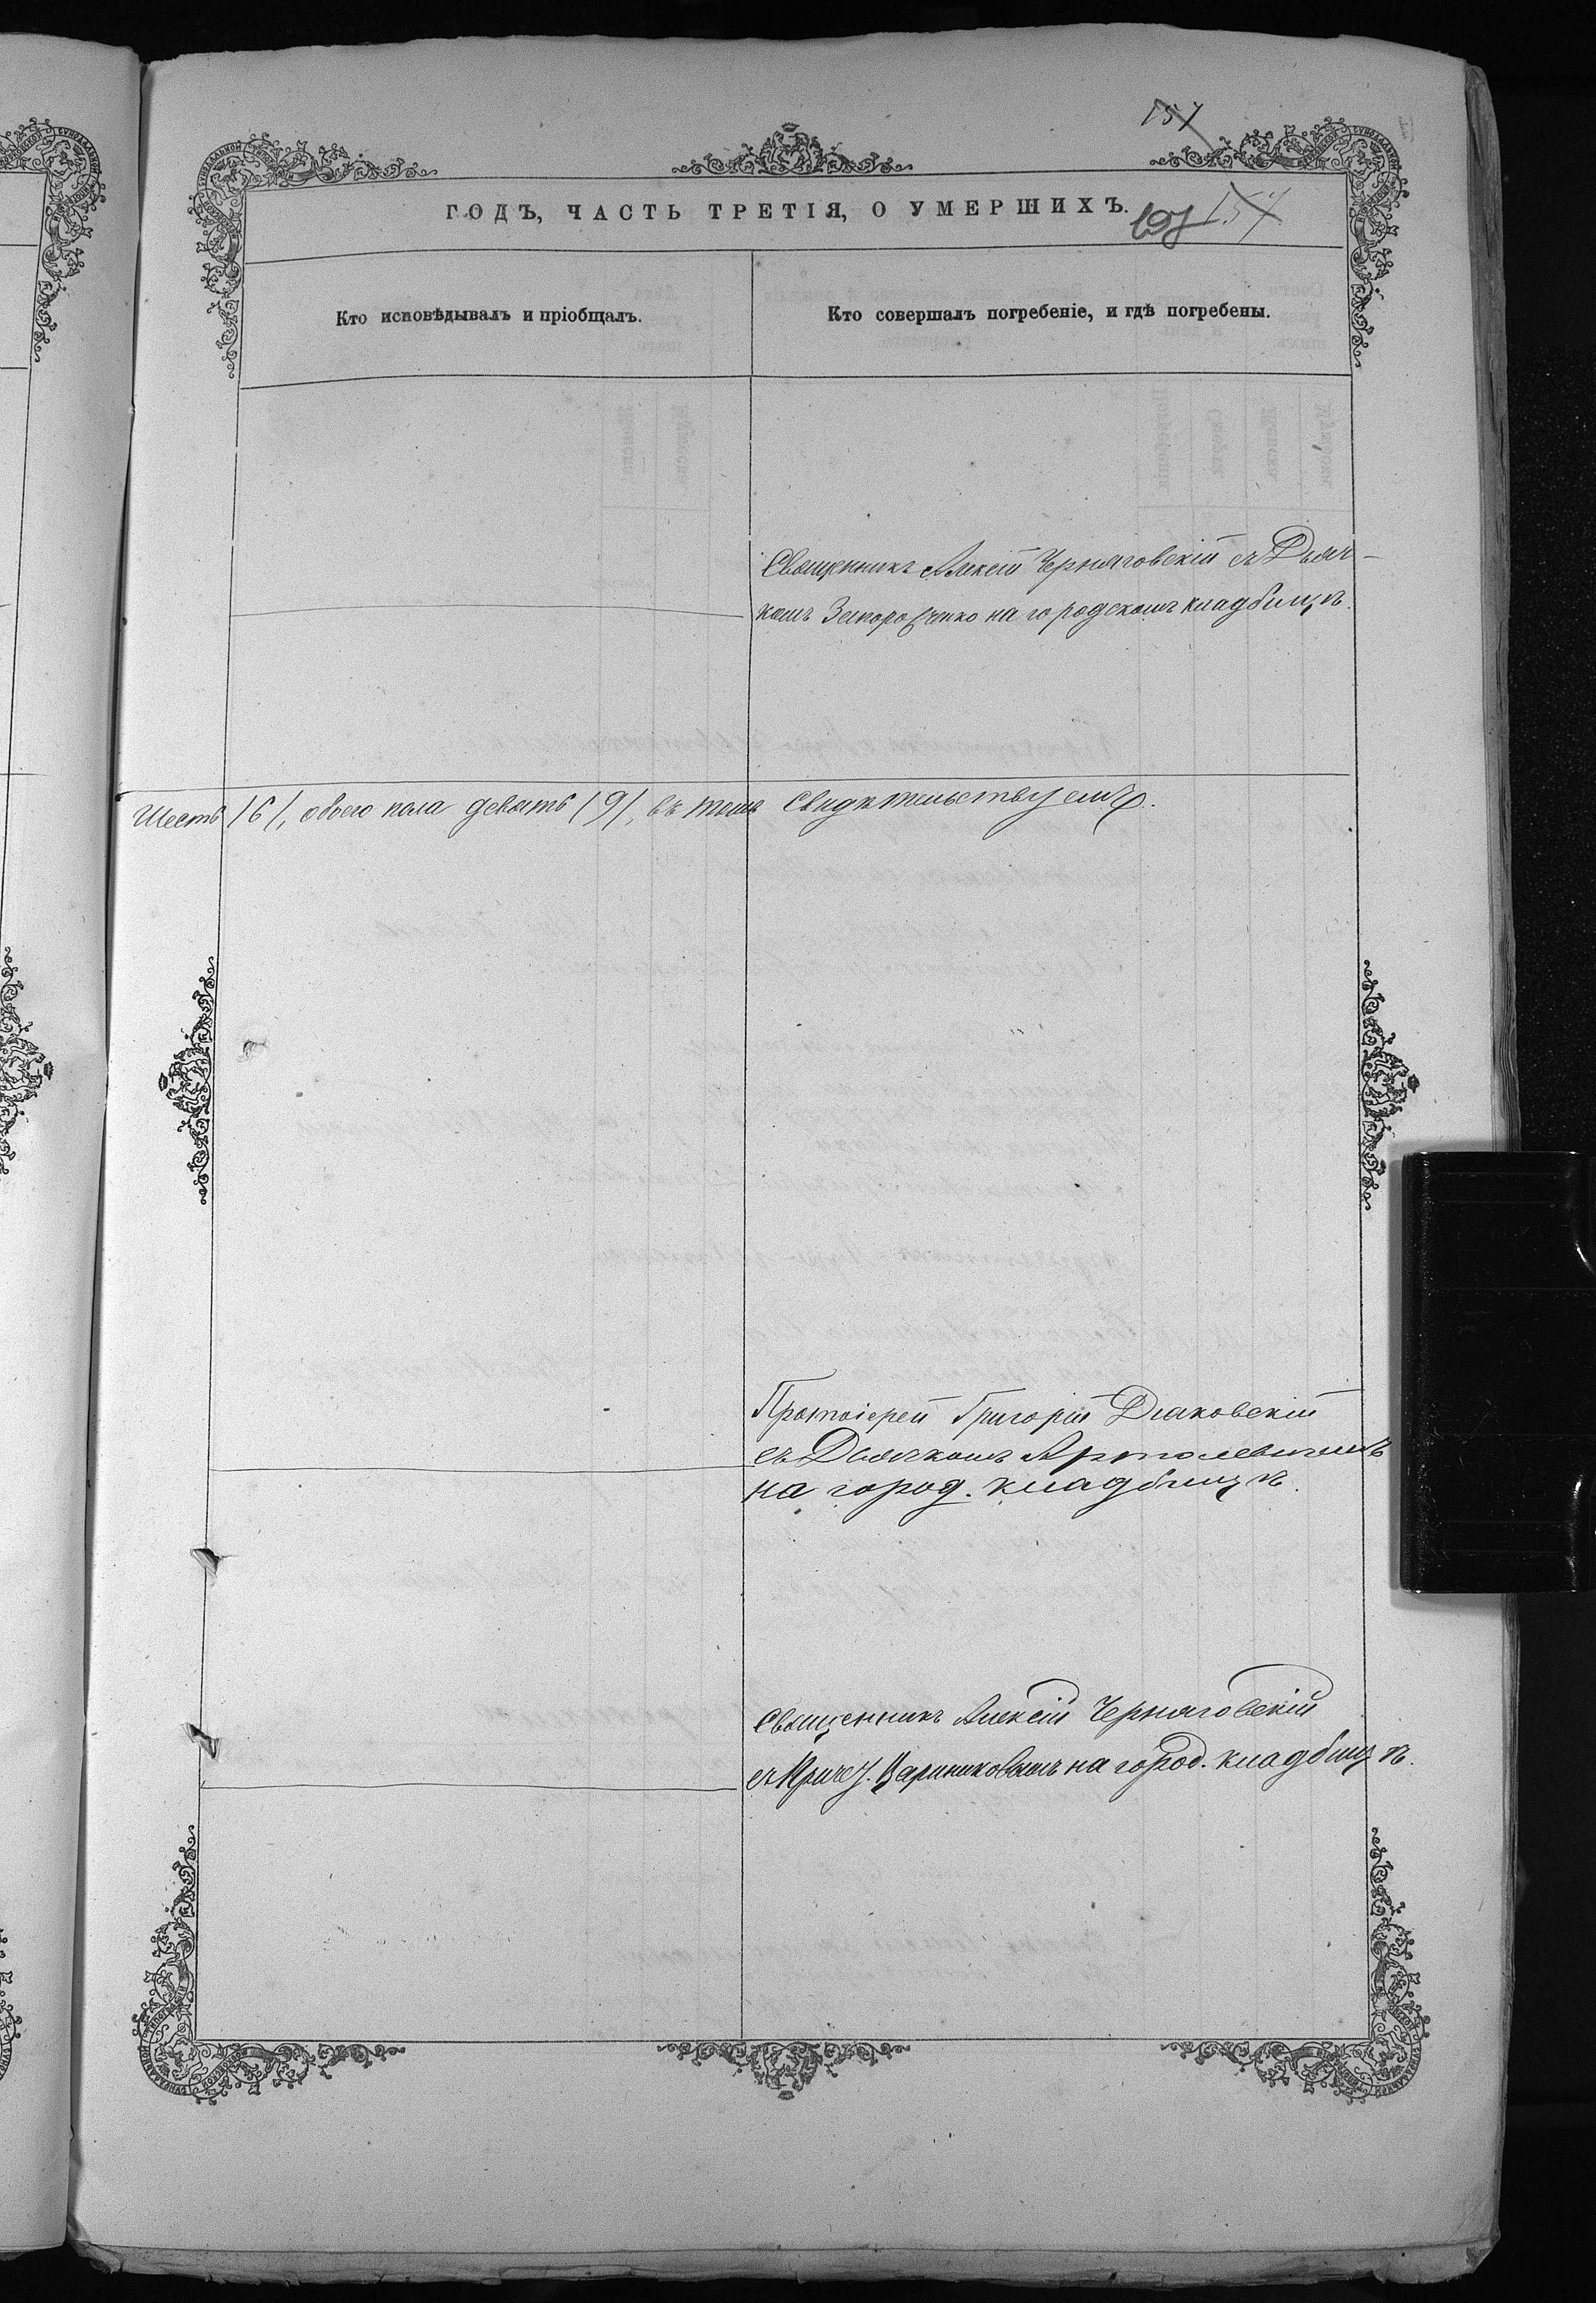 157
ГОДЪ, ЧАСТЬ ТРЕТІЯ, О УМЕРШИХЪ.
157
Кто исповѣдывалъ и пріобщалъ.
Кто совершалъ погребеніе, и гдѣ погребены.
Священникъ Алексій Черняговскій съ Дьяч-
комъ Запорожченко на городскомъ кладбищѣ.
Шесть /6/, обоего пола девять /9/, въ томъ свидѣтельствуемъ.
Протоіерей Григорій Діаковскій
съ Дьячкомъ
на город. кладбищѣ.
Священникъ Алексій Черняговскій
съ Причет. на город. кладбищѣ.